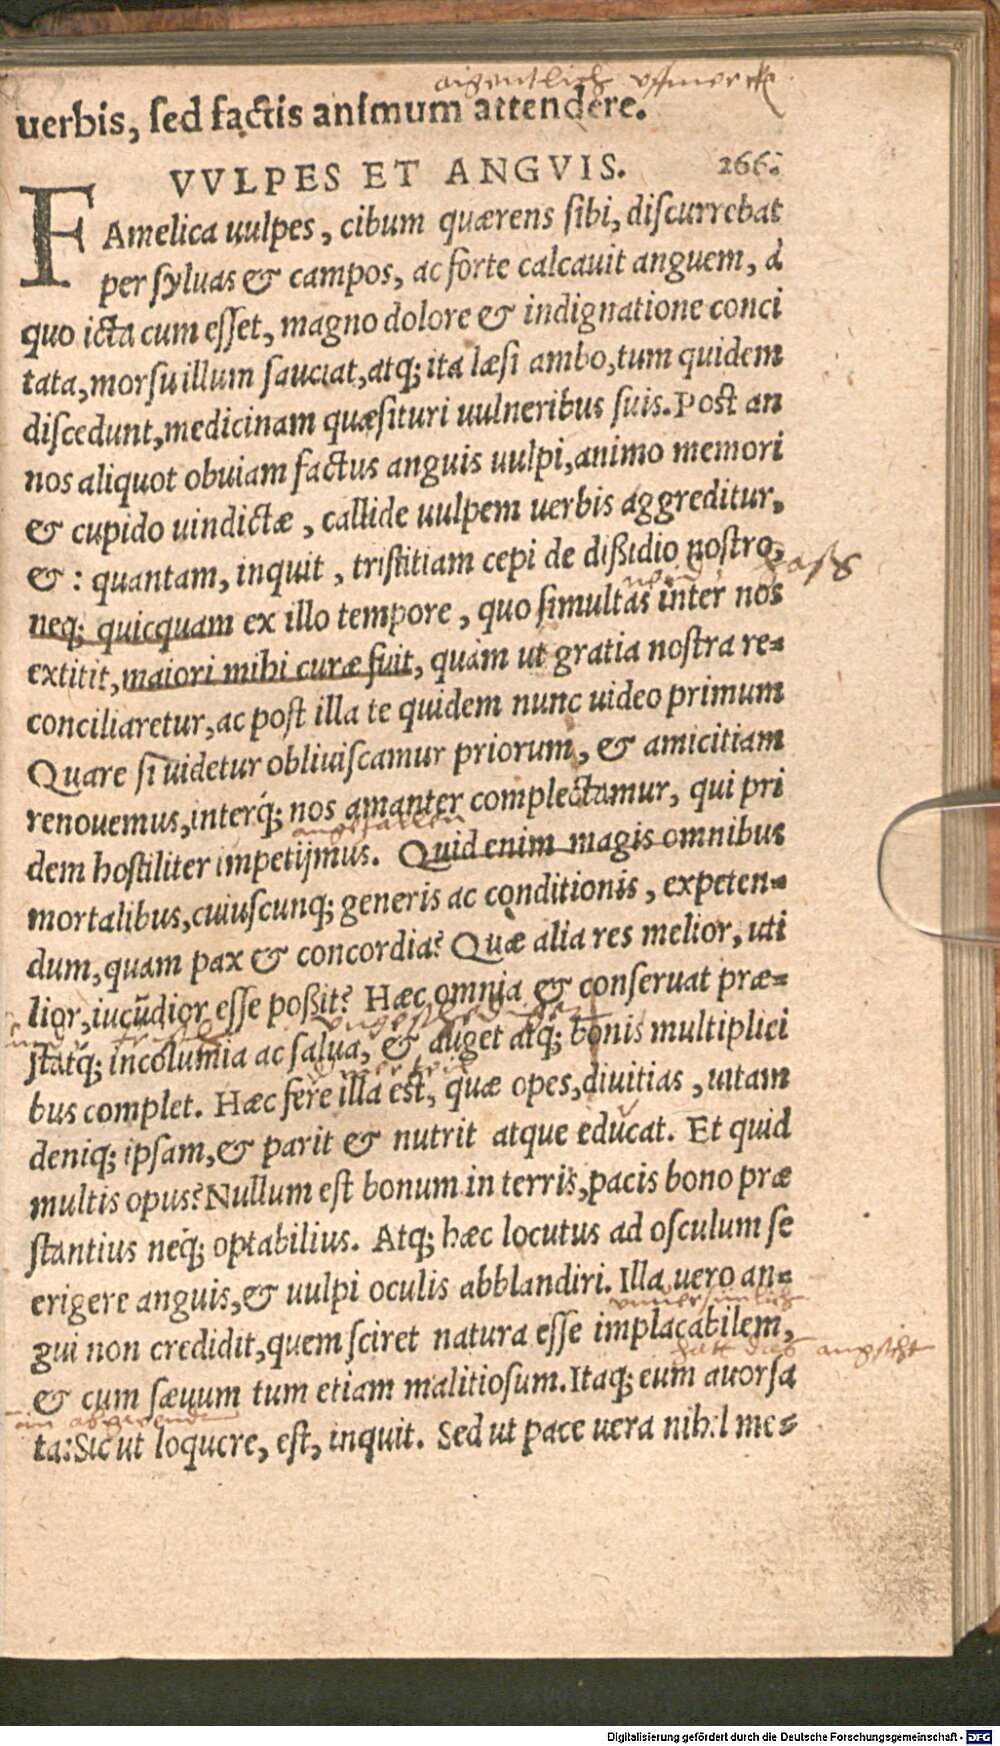 aigentlich uffmercke
uerbis, sed factis animum attendere.
VVLPES ET ANGVIS. 266.
FAmelica uulpes, cibum quærens sibi, discurrebat
per syluas & campos, ac forte calcauit anguem, à
quo icta cum esset, magno dolore & indignatione conci
tata, morsu illum sauciat, atq; ita læsi ambo, tum quidem
discedunt, medicinam quæsituri uulneribus suis. Post an
nos aliquot obuiam factus anguis uulpi, animo memori
& cupido uindictæ, callide uulpem uerbis aggreditur,
&: quantam, inquit, tristitiam cepi de dißidio nostro,
neq; quicquam ex illo tempore, quo simultas inter nos
extitit, maiori mihi curæ fuit, quàm ut gratia nostra re=
conciliaretur, ac post illa te quidem nunc uideo primum
Quare si uidetur obliuiscamur priorum, & amicitiam
renouemus, interq́; nos amanter complectamur, qui pri
angefallen
dem hostiliter impetijmus. Quid enim magis omnibus
mortalibus, cuiuscunq; generis ac conditionis, expeten=
dum, quàm pax & concordia? Quæ alia res melior, uti
lior, iucũdior esse poßit? Hæc omnia & conseruat præ=
statq́; incolumia ac salua, & auget atq; bonis multiplici
bus complet. Hæc fere illa est, quæ opes, diuitias, uitam
deniq; ipsam, & parit & nutrit atque educat. Et quid
multis opus? Nullum est bonum in terris, pacis bono præ
stantius neq́; optabilius. Atq; hæc locutus ad osculum se
erigere anguis, & uulpi oculis abblandiri. Illa uero an=
unuersünlich
gui non credidit, quem sciret natura esse implacabilem,
hatt das angsicht
& cum sæuum tum etiam malitiosum. Itaq; eum auorsa
ta: Sic ut loquere, est, inquit. Sed ut pace uera nihil me=
Digitalisierung gefördert durch die Deutsche Forschungsgemeinschaft - DFG